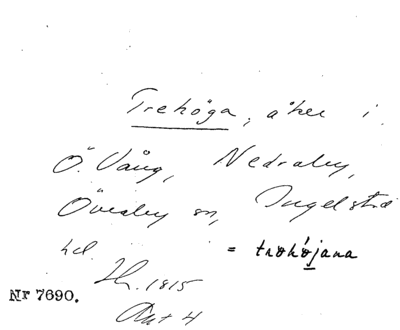 Trehöga, åker i
Ö. Vång, Nedraby,
Övraby sn, Ingelstad
hd. = trøhøjana
1815
Nr 7690.
Akt 4